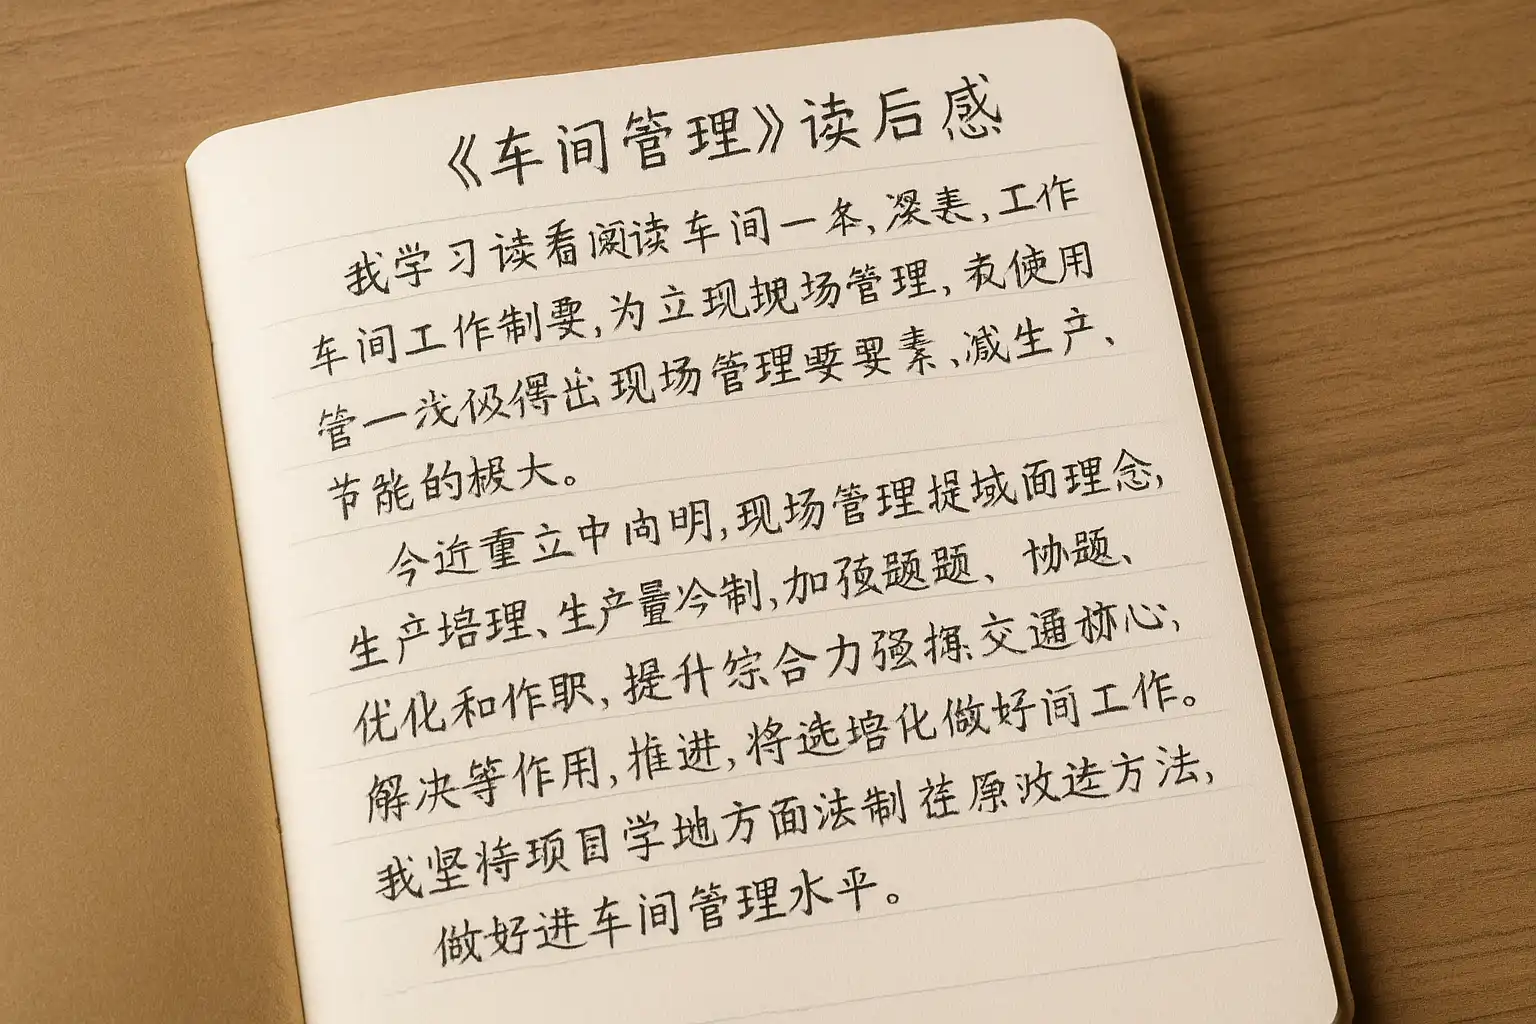 《车间管理》读后感
我学习读看阅读车间一条,深表,工作
车间工作制要,为立现场管理,表使用
管一浅极得出现场管理要要素、减生产、
节能的极大。
今近重立中向明,现场管理提域面理念,
生产培理、生产量冷制,加强题题、协题、
优化和作职,提升综合力强操交通核心;
解决等作用,推进,将选培化做好间工作。
我坚持项目学地方面法制 在原改进方法,
做好进车间管理水平。